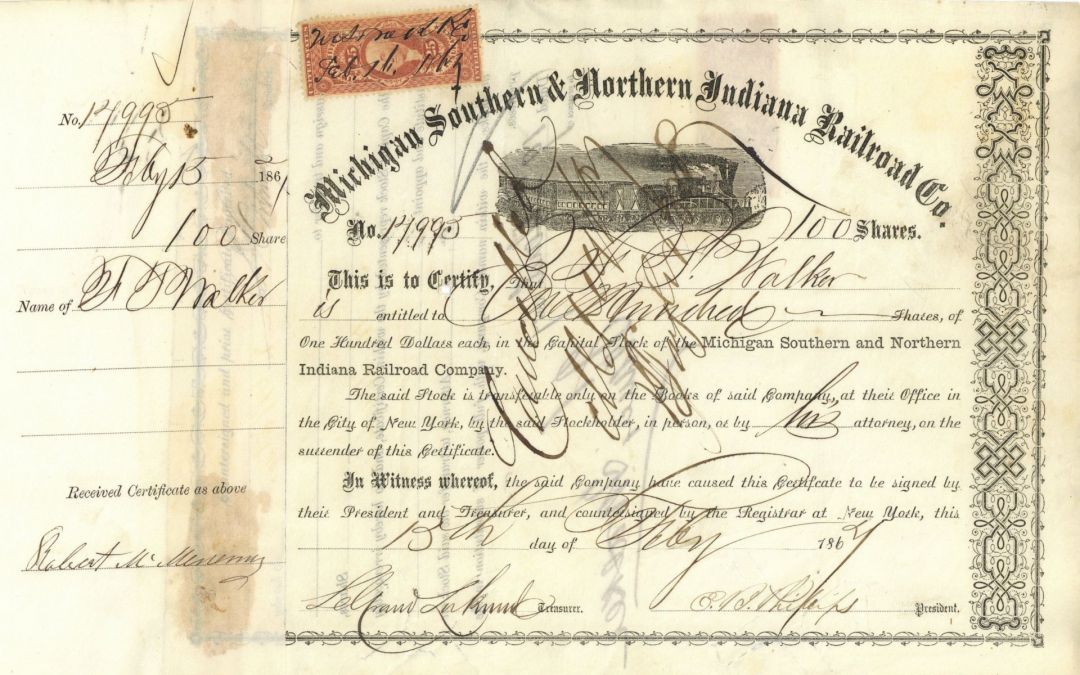 Feb. 16, 1867
Michigan Southern & Northern Indiana Railroad Co.
No. 14995
Feby 15 1867
100 Share
Name of F T Walker
Received Certificate as above
Robert
No. 14995 100 Shares.
This is to Certify, That Walker
is entitled to One Hundred Shares, of
One Hundred Dollars each, in the Capital Stock of the Michigan Southern and Northern
Indiana Railroad Company.
The said Stock is transferable only on the Books of said Company, at their Office in
the City of New York, by the said Stockholder, in person, or by his attorney, on the
surrender of this Certificate.
In Witness whereof, the said Company have caused this Certificate to be signed by
their President and Treasurer, and countersigned by the Registrar at New York, this
15th day of Feby 1867
LeGrand Lockwood Treasurer. E. B. Phillips President.
Cancelled